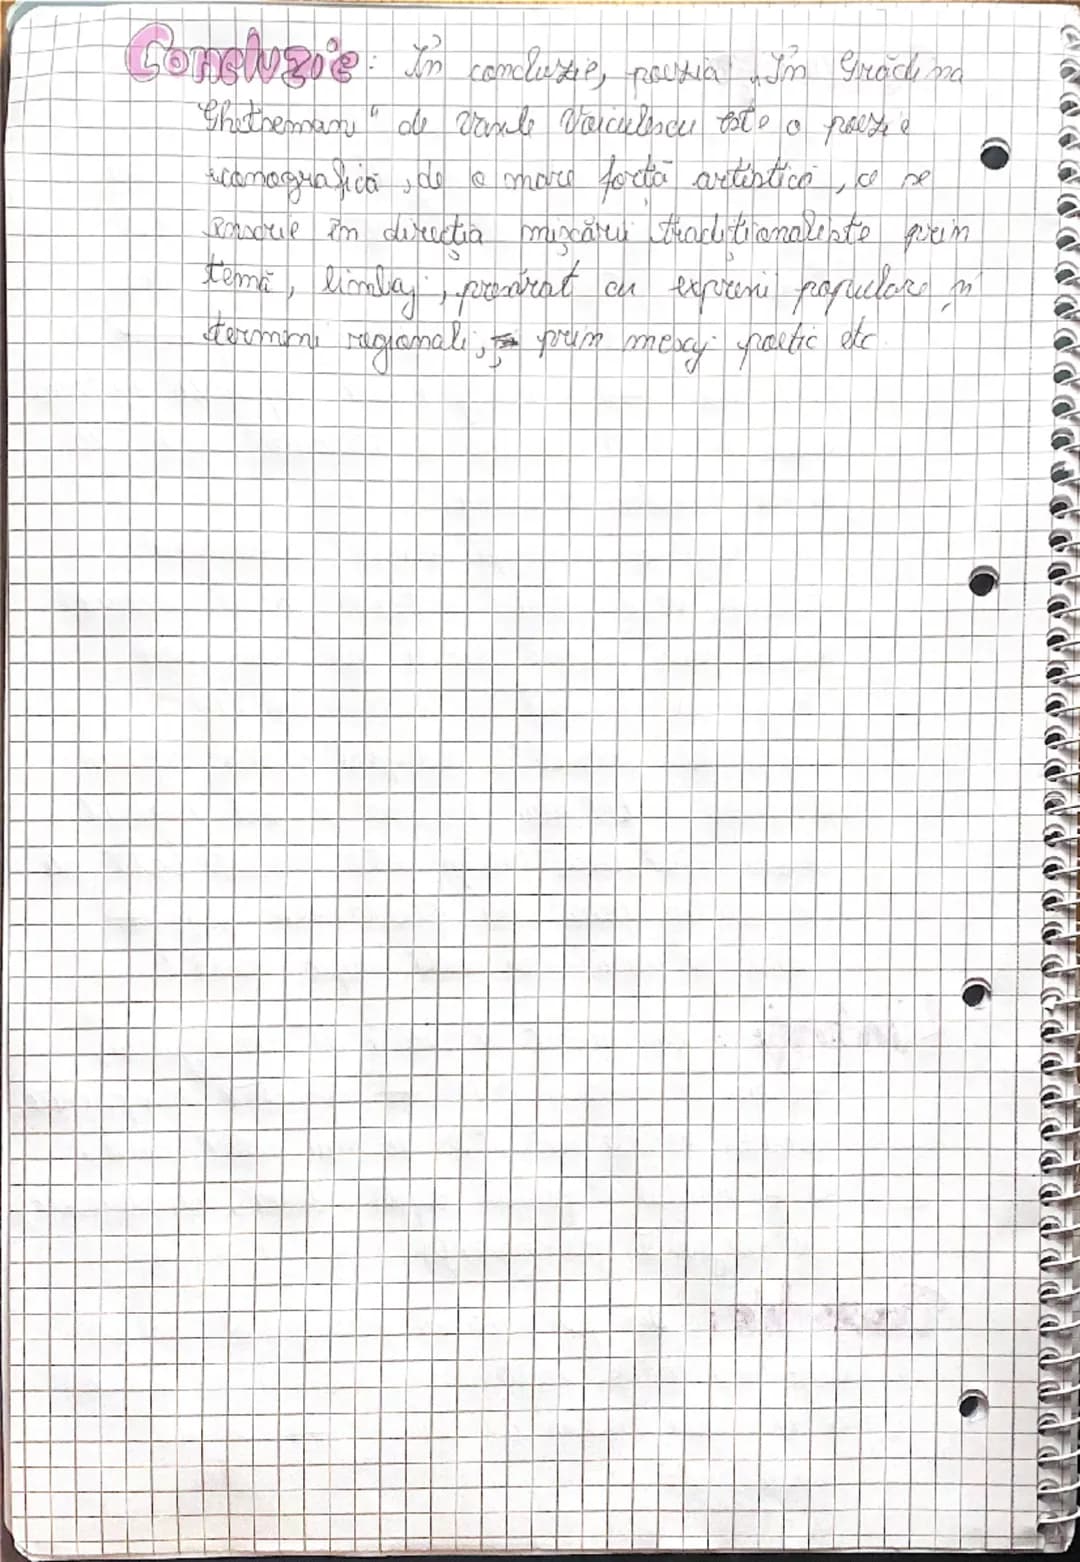 Concluzie: În concluzie, poezia „În Grădina
Ghetheman" de Vasile Voiculescu este o poezie
iconografică, de o mare forță artistică, ce se
înscrie în direcția mișcării tradiționaliste prin
temă, limbaj, presărat cu expresii populare și
termeni regionali, prin mesaj poetic etc.